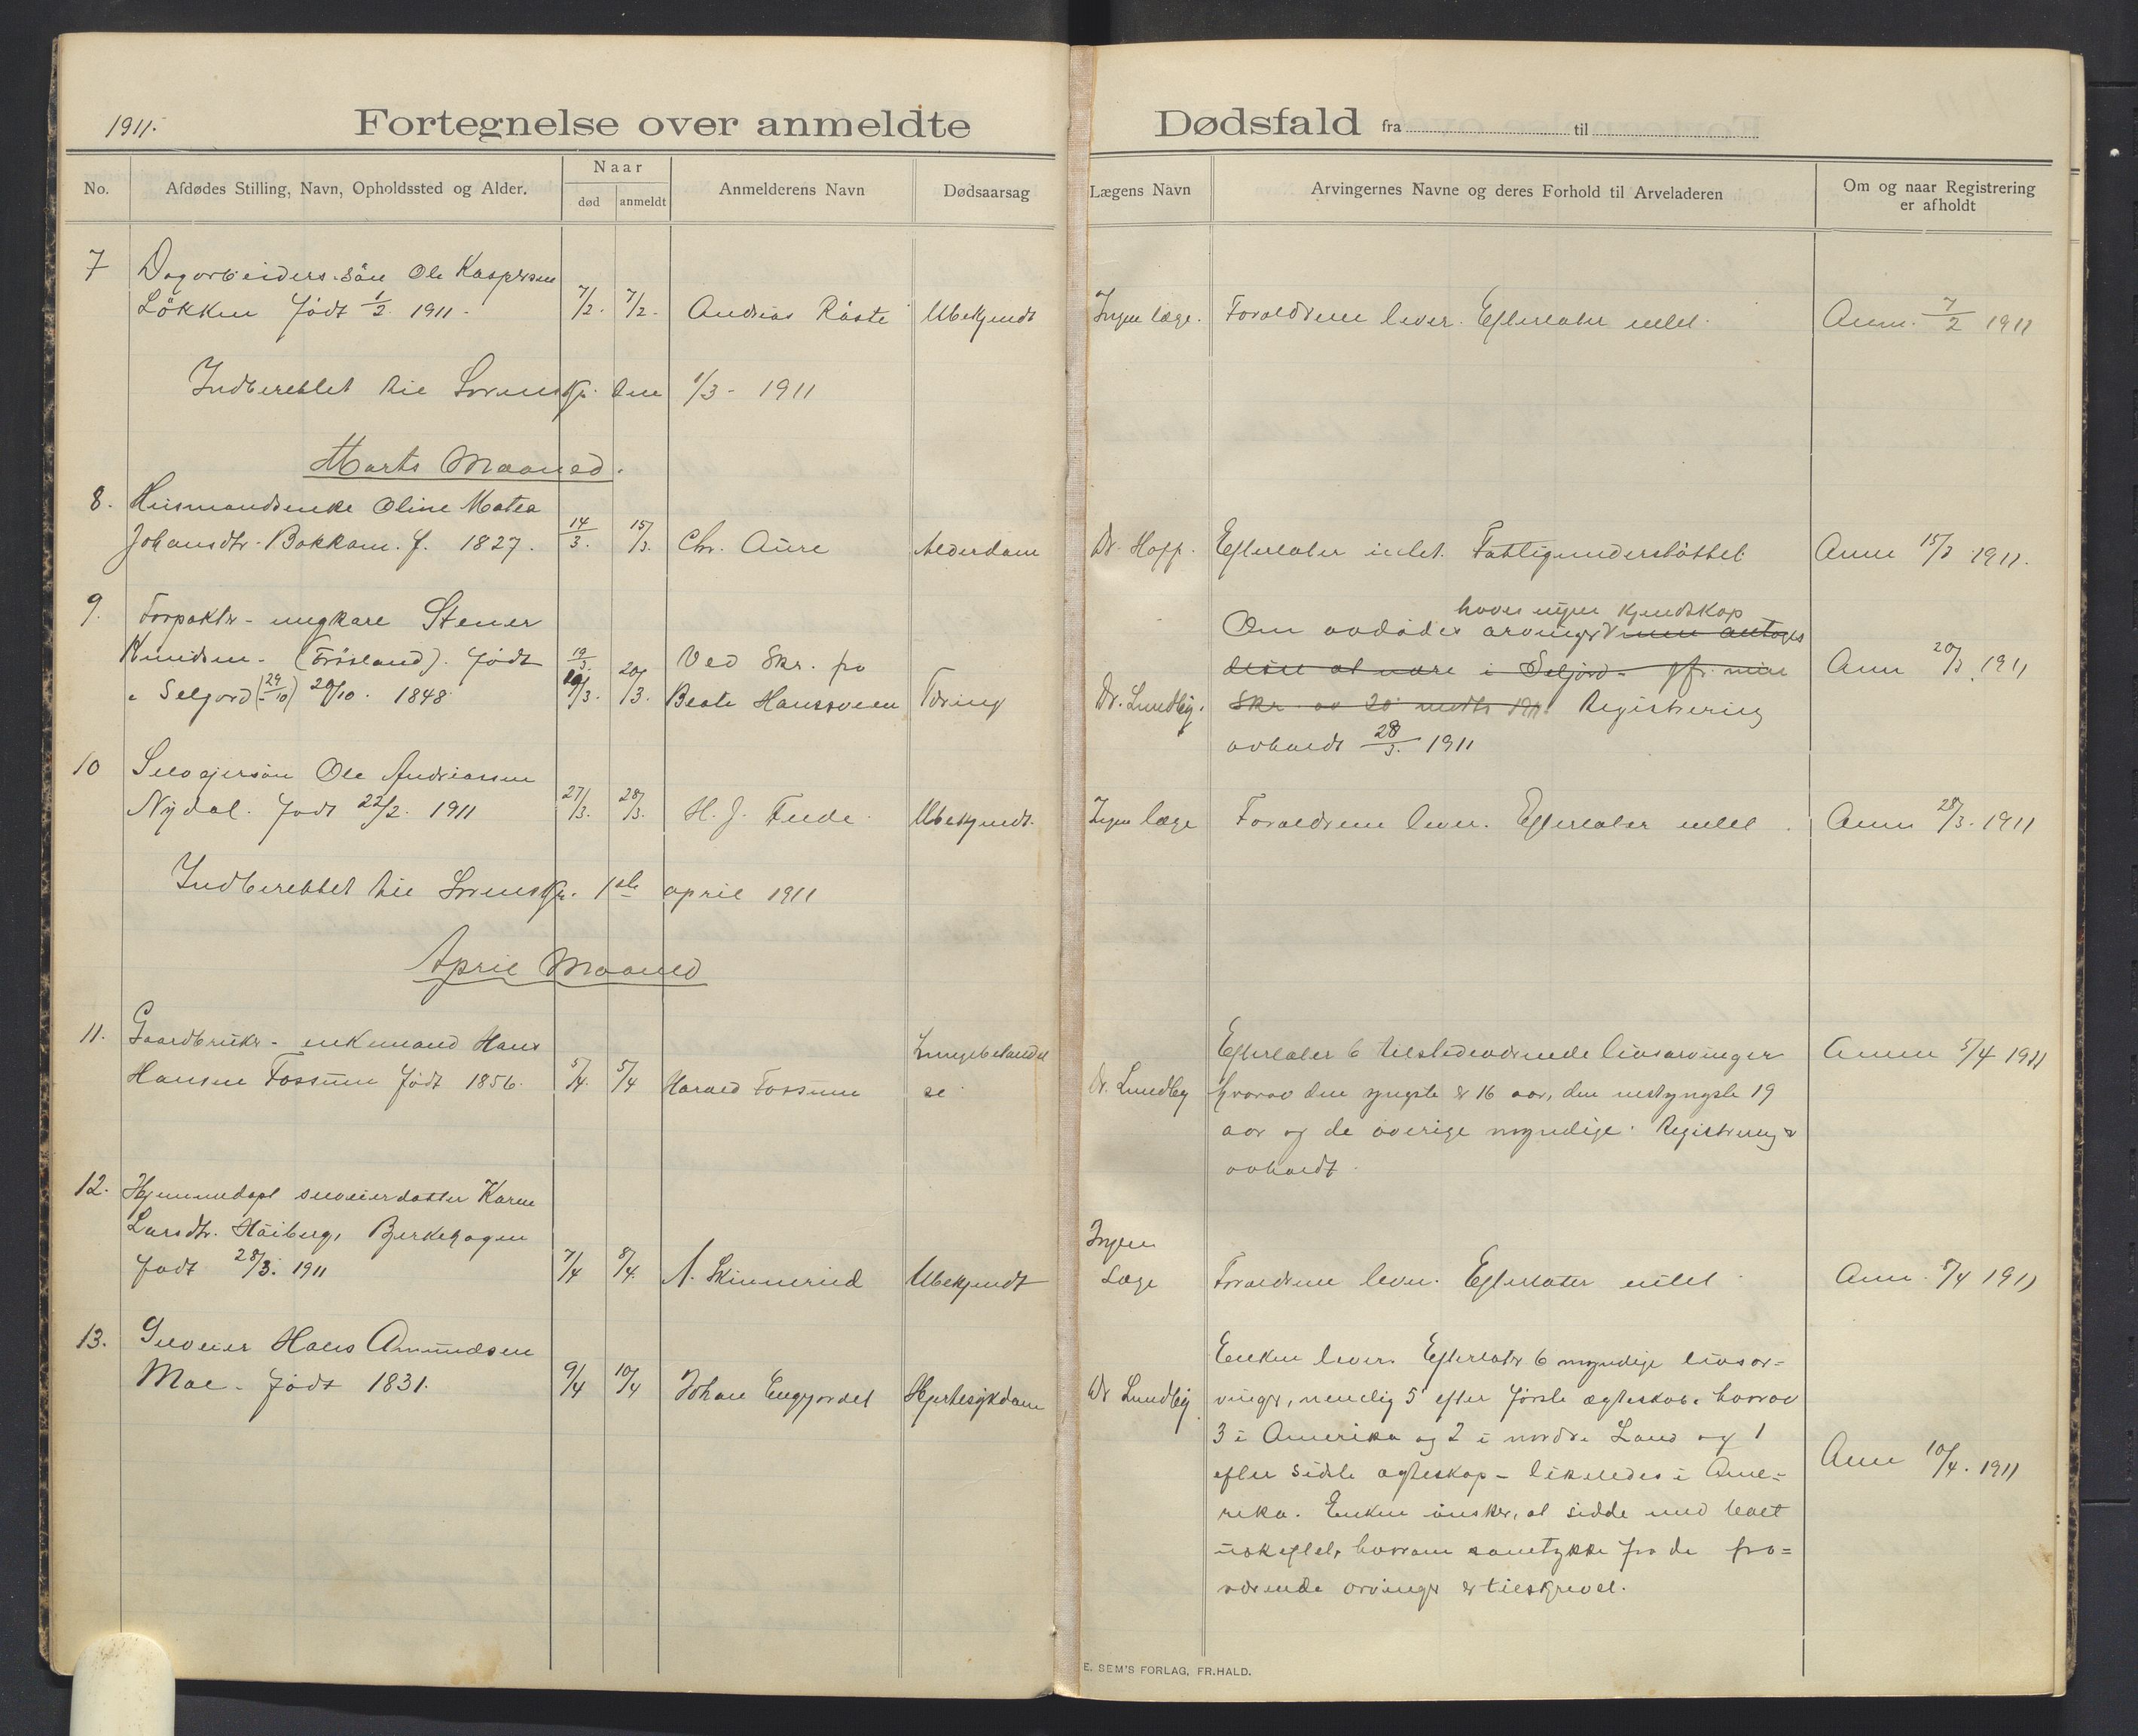 1911.
Fortegnelse over anmeldte Dødsfald fra til
No.
Afdødes Stilling, Navn, Opholdssted og Alder.
Naar
død
anmeldt
Anmelderens Navn
Dødsaarsag
Lægens Navn
Arvingernes Navne og deres Forhold til Arveladeren
Om og naar Registrering
er afholdt
7 Dagarbeiders-sön Ole Kaspersen
Lökken født 1/2 1911. 7/2. 7/2. Andreas Råste Ubekjendt Ingen læge. Forældrene lever. Efterlater intet. Anm. 7/2 1911
Indberettet til Sorenskr. den 1/3 - 1911
Marts Maaned.
8. Husmandsenke Oline Matea
Johansdtr. Bakkom. f. 1827. 14/3. 15/3. Chr. Aure Alderdom Dr. Hoff. Efterlater intet. Fattigunderstöttet Anm 15/3 1911.
9. Forpakter - ungkare Stener
Knudsen. (Frösland). født
i Seljord (29/10) 29/10. 1848. 19/3. 19/3. 20/3. Ved Skr. fra
Beate Hansveen Tæring Dr. Lundby.
haves ingen kjendskap
Om avdödes arvinger men antages
disse at være i Seljord - jfr. min
Skr. av 20 marts 1911. Registrering
avholdt 28/3. 1911
Anm 20/3 1911
10 Selveiersön Ole Andreassen
Nydal. født 22/2. 1911 27/3. 28/3. H. J. Ubekjendt. Ingen læge Forældrene lever. Efterlater intet. Anm 28/3. 1911
Indberettet til Sorenskr. 1ste april 1911
April Maaned
11. Gaardbruker - enkemand Hans
Hansen Fossum født 1856. 5/4. 5/4 Harald Fossum Lungebetændel
se Dr. Lundby
Efterlater 6 tilstedeværende livsarvinger
hvorav den yngste er 16 aar, den nestyngste 19
aar og de överige myndige. Registrering
avholdt.
Anm 5/4 1911
12. Hjemmedøpt selveierdatter Karen
Larsdtr. Haiberg, Bjerkehagen
født 28/3. 1911 7/4 8/4. A. Skinnerud Ubekjendt Ingen
Læge Forældrene lever. Efterlater intet. Anm. 8/4 1911
13. Selveier Hans Amundsen
Moe. født 1831. 9/4 10/4 Johan Engjordet Hjertesykdom Dr Lundby
Enken lever. Efterlater 6 myndige livsar=
vinger, nemlig 5 efter förste ægteskab, hvorav
3 i Amerika og 2 i nordre Land og 1
efter sidste ægteskap - likeledes i Ame=
rika. Enken önsker, at sidde med boet
uskiftet, hvorom samtykke fra de fra=
værende arvinger er tilskrevet.
Anm 10/4. 1911
E. SEM'S FORLAG, FR.HALD.